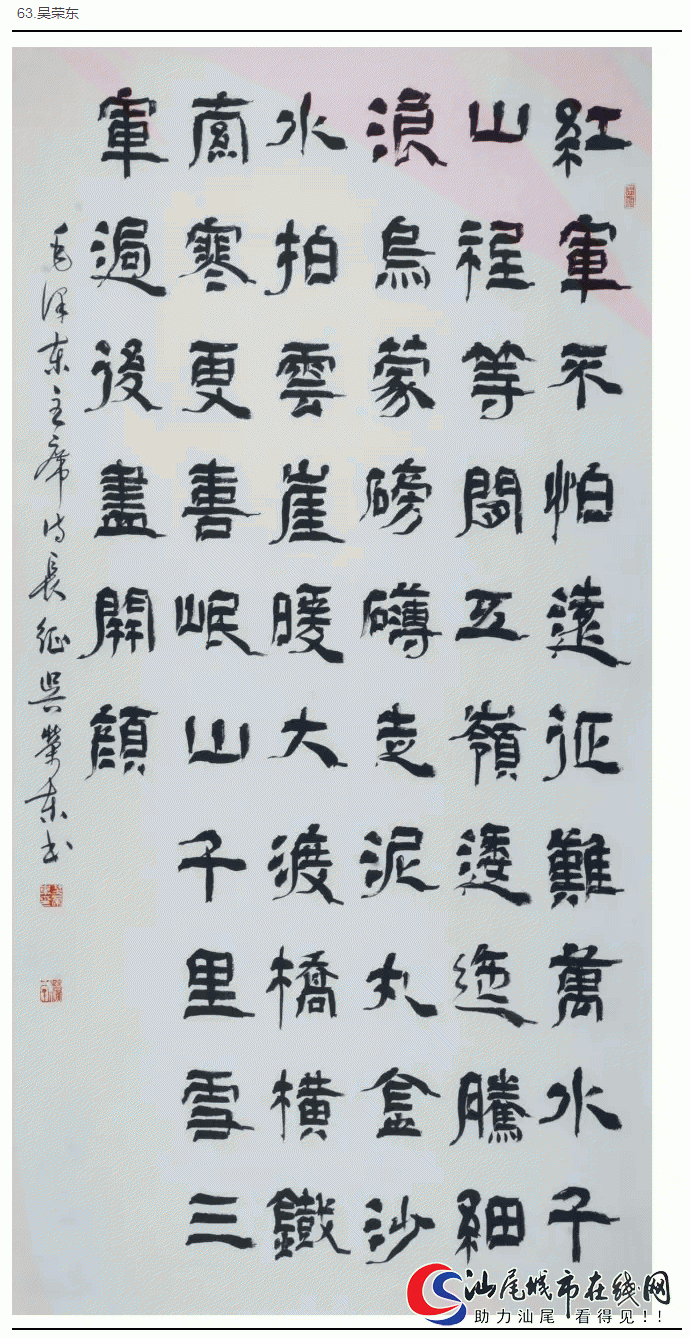 63.吴荣东
紅軍不怕遠征難萬水千
山程等閒五嶺逶迤騰細
浪烏蒙磅礴走泥丸金沙
水拍雲崖暖大渡橋橫鐵
索寒更喜岷山千里雪三
軍過後盡開顏
毛泽东主席诗長征吴榮东书
汕尾城市在线网
助力汕尾 看得见!!